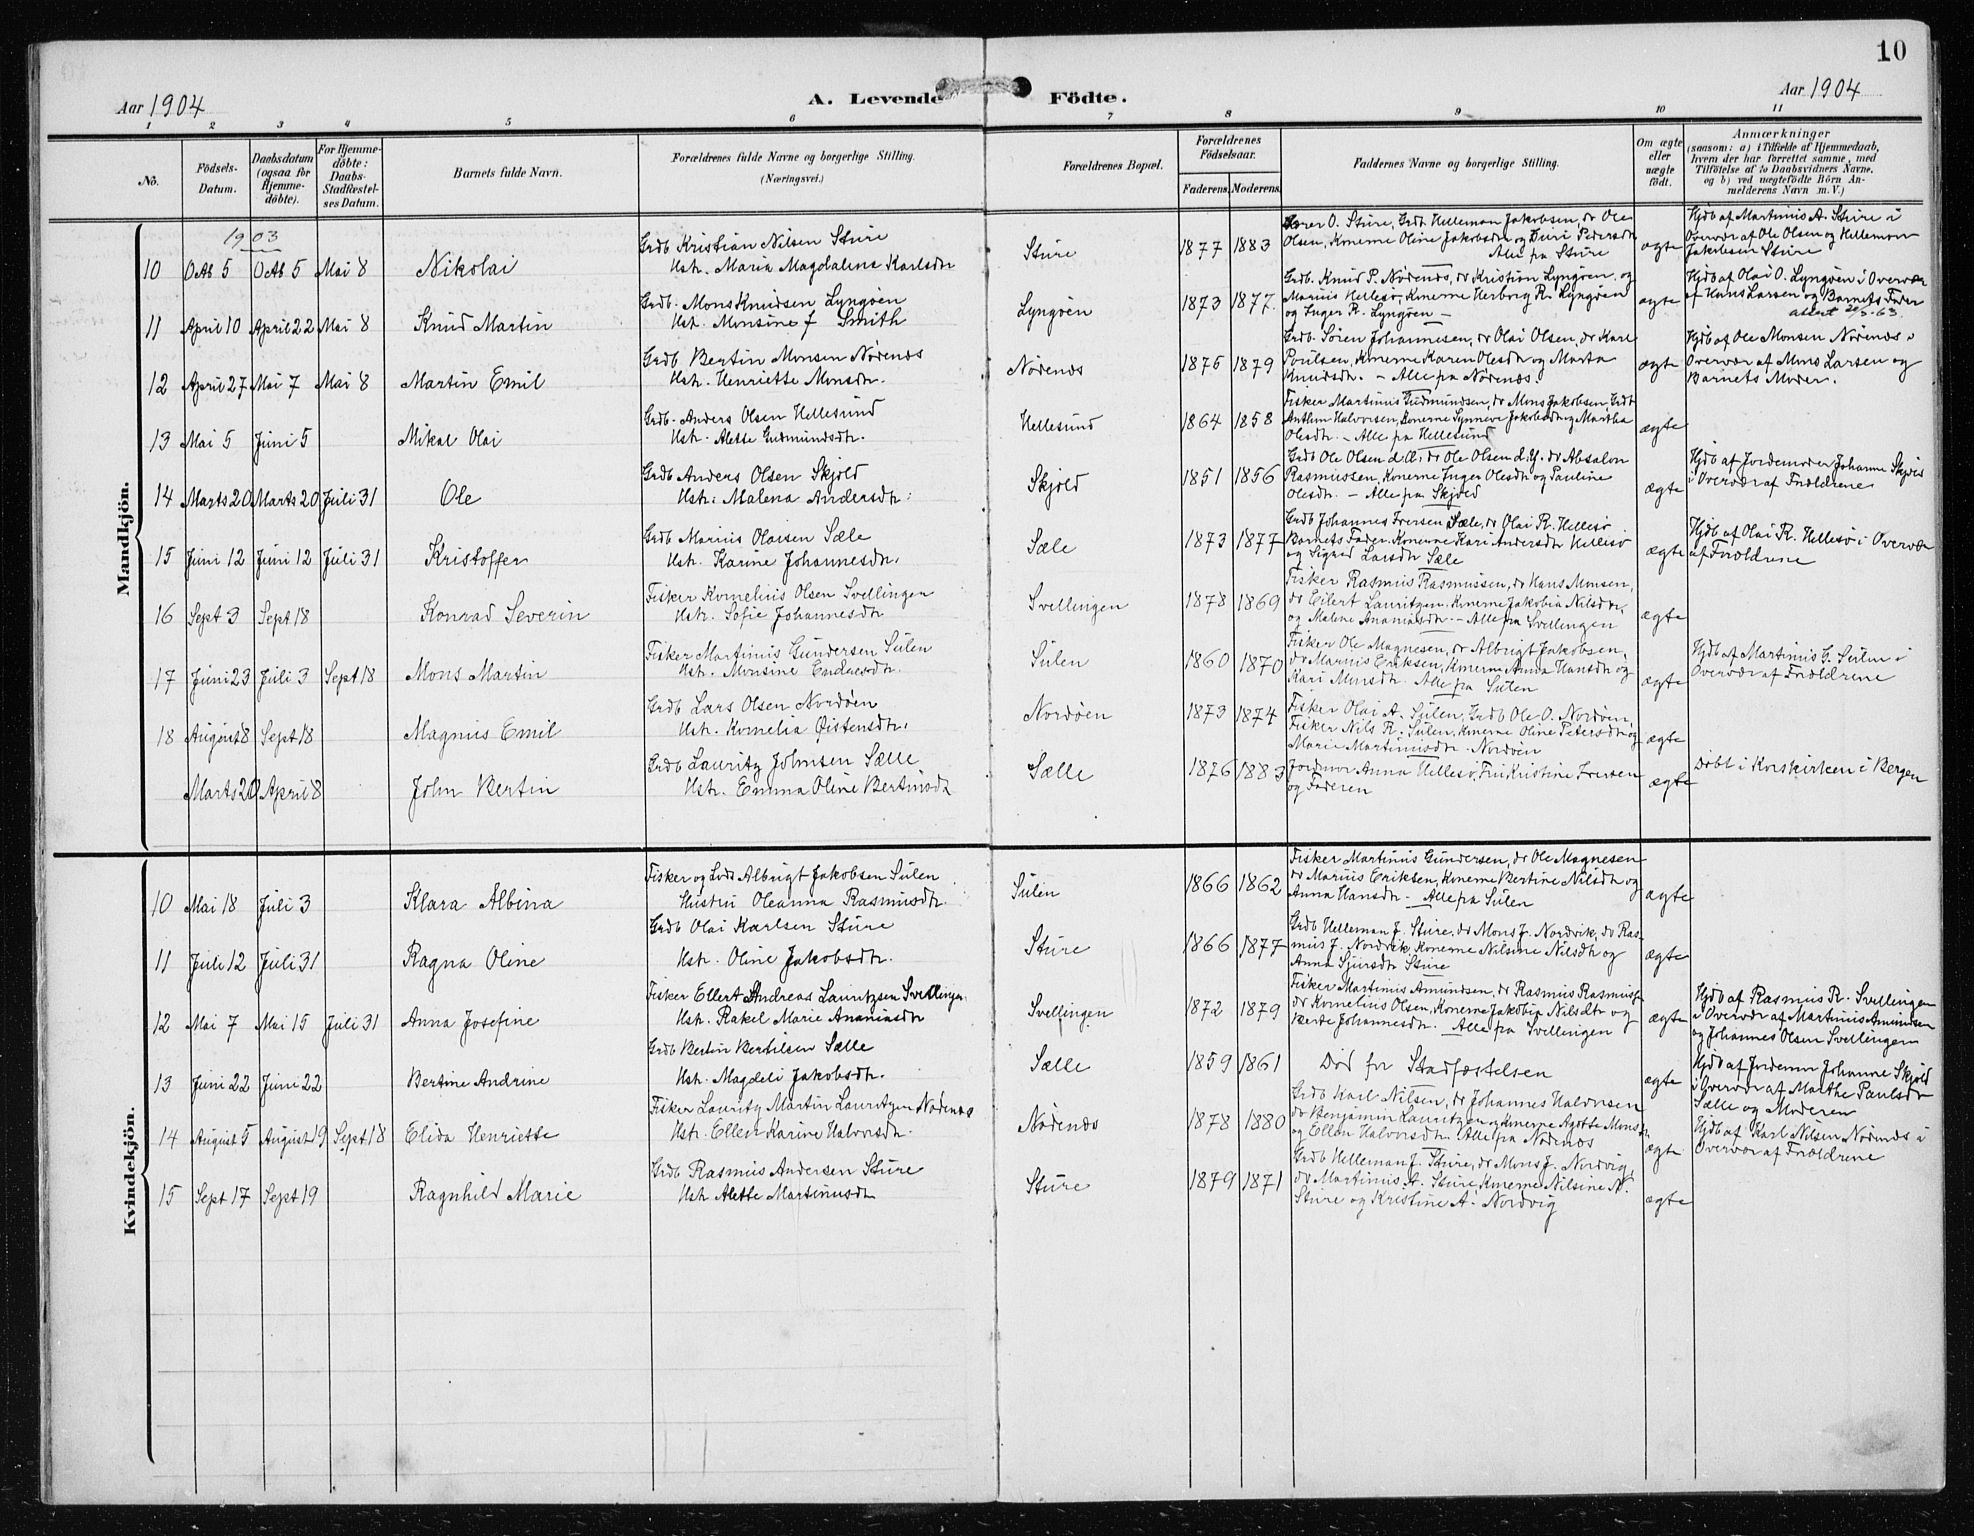 10
Aar 1904
A. Levende Födte.
Aar 1904
1 2 3 4 5 6 7 8 9 10 11
No.
Födsels-
Datum.
Daabsdatum
(ogsaa for
Hjemme-
döbte).
For Hjemme-
döbte:
Daabs-
Stadfæstel-
ses Datum.
Barnets fulde Navn.
Forældrenes fulde Navne og borgerlige Stilling.
(Næringsvei.)
Forældrenes Bopæl.
Forældrenes
Födselsaar.
Faderens. Moderens.
Faddernes Navne og borgerlige Stilling.
Om ægte
eller
uægte
födt.
Anmærkninger
(saasom: a) i Tilfælde af Hjemmedaab,
hvem der har forrettet samme, med
Tilföielse af to Daabsvidners Navne,
og b) ved uægtefödte Börn An-
melderens Navn m. V.)
Mandkjön.
1903
10 Okt 5 Okt 5 Mai 8 Nikolai
Grdb Kristian Nilsen Sture
Hstr. Maria Magdalena Karlsdtr
Sture 1877 1883
O. Sture, Grdb. Helleman Jakobsen, do Ole
Olsen, Konerne Oline Jakobsdtr og Duri Pedersdtr
Alle pa Sture
ægte
Hjdb af Martinus A. Sture i
Overvær af Ole Olsen og Helleman
Jakobsen Sture
11 April 10 April 22 Mai 8 Knud Martin
Grdb. Mons Knudsen Lyngøen
Hstr. Monsine J Smith
Lyngøen 1873 1877
Grdb. Knud P. Nødenæs, do Kristian Lyngøen og
Marius Hellesø, Konerne Herborg R. Lyngøen
og Inger R. Lyngøen —
ægte
Hjdb af Olai O. Lyngøen i Overvær
af Hans Larsen og Barnets Fader
12 April 27 Mai 7 Mai 8 Martin Emil
Grdb Bertin Monsen Nødenæs
Hstr. Henriette Monsdtr.
Nødenæs 1875 1879
Grdb. Søren Johannesen, do Olai Olsen, do Karl
Poulsen, Konerne Karen Olesdtr og Marta
Knudsdtr. — Alle pa Nødenæs.
ægte
Hjdb af Ole Monsen Nødenæs i
Overvær af Mons Larsen og
Barnets Moder.
13 Mai 5 Juni 5 Mikal Olai
Grdb. Anders Olsen Hellesund
Hstr. Alette Gudmundsdtr.
Hellesund 1864 1858
Fisker Martinus Gudmundsen, do Mons Jakobsen, Grdb
Anthun Halvorsen, Konerne Synneve Jakobsdtr og Martha
Olesdtr. — Alle pa Hellesund
ægte
14 Marts 20 Marts 20 Juli 31 Ole
Grdb Anders Olsen Skjold
Hstr. Malena Andersdtr.
Skjold 1851 1856
Grdb Ole Olsen d.Æ. do Ole Olsen d.y. do Absalon
Rasmussen, Konerne Inger Olesdtr og Pauline
Olesdtr. — Alle pa Skjold
ægte
Hjdb af Jordemoder Johanne Skjold
i Overvær af Forældrene
15 Juni 12 Juni 12 Juli 31 Kristoffer
Grdb Marius Olaisen Sæle
Hstr. Karine Johannesdtr.
Sæle 1873 1877
Grdb Johannes Iversen Sæle, do Olai R. Hellesø
Barnets Fader. Konerne Kari Andersdtr Hellesø
og Sigrid Larsdtr Sæle
ægte
Hjdb af Olai R. Hellesø i Overvær
af Forældrene
16 Sept 3 Sept 18 Konrad Severin
Fisker Kornelius Olsen Svellingen
Hstr. Sofie Johannesdtr
Svellingen 1878 1869
Fisker Rasmus Rasmussen, do Hans Monsen,
do Eilert Lauritzen. Konerne Jakobia Nilsdtr.
og Malene Ananiasdtr. — Alle pa Svellingen
ægte
17 Juni 23 Juli 3 Sept 18 Mons Martin
Fisker Martinus Gundersen Sulen
Hstr. Monsine Endresdtr.
Sulen 1860 1870
Fisker Ole Magnesen, do Albrigt Jakobsen,
do Marius Eriksen, Konerne Anna Hansdtr og
Kari Monsdtr. Alle pa Sulen
ægte
Hjdb af Martinus G. Sulen i
Overvær af Forældrene
18 August 8 Sept 18 Magnus Emil
Grdb Lars Olsen Nordøen
Hstr. Kornelia Øistensdtr.
Nordøen 1873 1874
Fisker Olai A. Sulen, Grdb Ole O. Nordøen,
Fisker Nils R. Sulen, Konerne Oline Petersdtr og
Marie Martinusdtr. Nordøen
ægte
Marts 20 April 8 John Bertin
Grdb Lauritz Johnsen Sælle
Hstr. Emma Oline Bertinsdtr
Sælle 1876 1883
Jordmor Anna Hellesø, Fru Kristine Iversen
og Faderen
ægte
Døbt i Korskirken i Bergen
Kvindekjön.
10 Mai 18 Juli 3 Klara Albina
Fisker og Lods Albrigt Jakobsen Sulen
Hustru Oleanna Rasmusdtr.
Sulen 1866 1862
Fisker Martinus Gundersen, do Ole Magnesen
do Marius Eriksen, Konerne Bertine Nilsdtr og
Anna Hansdtr — Alle pa Sulen
ægte
11 Juli 12 Juli 31 Ragna Oline
Grdb Olai Karlsen Sture
Hstr. Oline Jakobsdtr.
Sture 1866 1877
Grdb Helleman J. Sture, do Mons J. Nordvik, do Ras-
mus J. Nordvik, Konerne Nilsine Nilsdtr og
Anna Sjursdtr Sture
ægte
12 Mai 7 Mai 15 Juli 31 Anna Josefine
Fisker Ellert Andreas Lauritzsen Svellingen
Hstr. Rakel Marie Ananiasdtr
Svellingen 1872 1879
Fisker Martinus Amundsen, do Rasmus Rasmuss.
do Kornelius Olsen, Konerne Jakobia Nilsdtr og
Berte Johannesdtr. Alle pa Svellingen
ægte
Hjdb af Rasmus R. Svellingen
i Overvær af Martinus Amundsen
og Johannes Olsen Svellingen
13 Juni 22 Juni 22 Bertine Andrine
Grdb Bertin Bertilsen Sælle
Hstr. Magdeli Jakobsdtr.
Sælle 1859 1861
Død før Stadfæstelsen
ægte
Hjdb af Jordemor Johanne Skjold
i Overvær af Marthe Paulsdtr
Sælle og Moderen
14 August 5 August 19 Sept 18 Elida Henriette
Fisker Lauritz Martin Lauritzen Nødenæs
Hstr. Ellen Karine Halvorsdtr.
Nødenæs 1878 1880
Grdb Karl Nilsen, do Johannes Halvorsen
do Benjamin Lauritzen og Konerne Agathe Monsdtr
og Ellen Halvorsdtr. Alle pa Nødenæs
ægte
Hjdb af Karl Nilsen Nødenæs i
Overvær af Forældrene
15 Sept 17 Sept 19 Ragnhild Marie
Grdb Rasmus Andersen Sture
Hstr Alette Martinusdtr
Sture 1879 1871
Grdb Helleman J. Sture, do Mons J. Nordvig,
do Martinus A. Sture, Konerne Nilsine N.
Sture og Kristine A. Nordvig
ægte